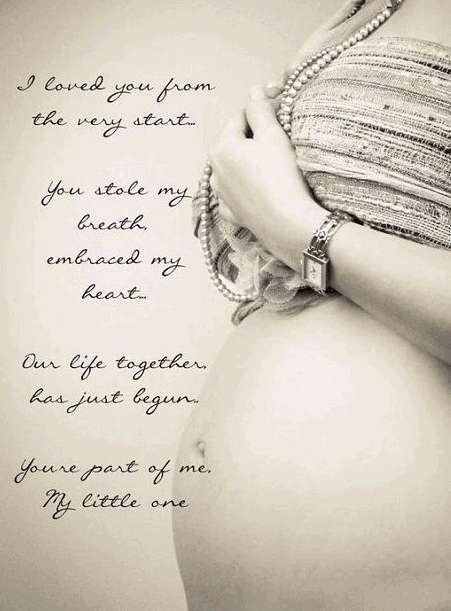 I loved you from
the very start...
You stole my
breath,
embraced my
heart...
Our life together,
has just begun..
Youre part of me,
My little one